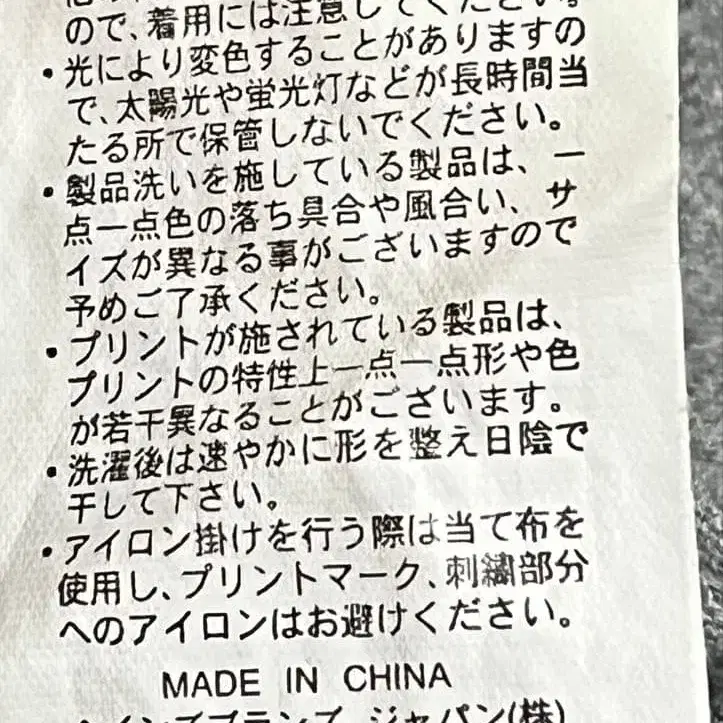 ので、着用には注意してください。
・光により変色することがありますの
で、太陽光や蛍光灯などが長時間当
たる所で保管しないでください。
・製品洗いを施している製品は、一
点一点色の落ち具合や風合い、サ
イズが異なる事がございますので
予めご了承ください。
・プリントが施されている製品は、
プリントの特性上一点一点形や色
が若干異なることがございます。
・洗濯後は速やかに形を整え日陰で
干して下さい。
・アイロン掛けを行う際は当て布を
使用し、プリントマーク、刺繍部分
へのアイロンはお避けください。
MADE IN CHINA
ヘインズブランズ ジャパン(株)